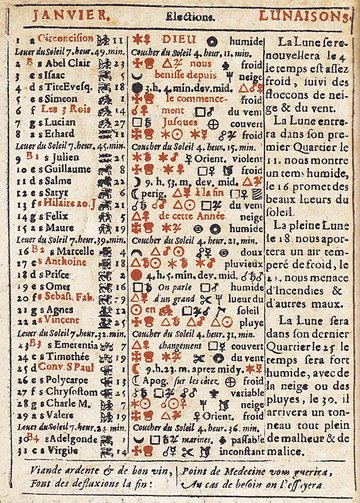 JANVIER. Elections. LUNAISONS.
1 a Circoncision 11 DIEU humide
Lever du Soleil 7. heur. 49. min. Coucher du Soleil 4. heur. 11. min.
2 B Abel Clair 23 nous froid
3 c s Isaac 5 benisse depuis neige
4 d s TiteEvesq. 18 3. h. 4. min. dev. mid.
5 e s Simeon 1 le commence- froid
6 f Les 3 Rois ment du vent
7 g s Lucian 27 Jusques couvert
8 a s Echard 9 froid
Lever du Soleil 7. heur. 45. min. Coucher du Soleil 4. heur. 15. min.
9 B s Julien 25 Orient, violent
10 c s Guillaume 8 froid
11 d s Salme 22 9. h. 53. m. dev. mid.
12 e s Satyr perig. à la fin
13 f s Hilaire 20. J du vent
14 g s Felix 5 de cette Année neige
15 a s Maure 19 humide
Lever du Soleil 7. heur. 39. min. Coucher du Soleil 4. heur. 21. min.
16 B s Marcelle doux
17 c s Anthoine 18 pluvieux
18 d s Prisce 2 4. h. 5. min. dev. mid.
19 e s Omer 16 On parle humide
20 f s Sebast. Fab. d'un grand lueur du
21 g s Agnes soleil
22 a s Vincent pluye
Lever du Soleil 7. heur. 32. min. Coucher du Soleil 4. heur. 31. min.
23 B s Emerentia 7 changement couvert
24 c s Timothée 19 du vent
25 d Conv. S Paul 9. h. 23. m. aprez midy.
26 e s Polycarpe 13 Apog. sur les côtez froid
27 f s Chrysostom variable
28 g s Charle M. neige
29 a s Valere 19 Orient. froid
Coucher du Soleil 4. heur. 36. min.
30 B s Adelgonde marines, passable
31 c s Virgile 14 inconstant
La Lune se re-
nouvellera le 4
le temps est assez
froid, suivi des
floccons de nei-
ge & du vent.
La Lune entre-
ra dans son pre-
mier Quartier le
11. nous montre
un tems humide,
le 16 promet des
beaux lueurs du
soleil.
La pleine Lune
le 18. nous appor-
tera un air tem-
peré de froid, le
21. nous menace
d'Incendies &
d'autres maux.
La Lune sera
dans son dernier
Quartier le 25 le
temps sera fort
humide, avec de
la neige ou des
pluyes, le 30. il
arrivera un ton-
neau tout plein
de malheur & de
malice.
Viande ardente & de bon vin,
Font des defluxions la fin:
Point de Medecine vom guerira,
Au cas de besoin on l'essyera